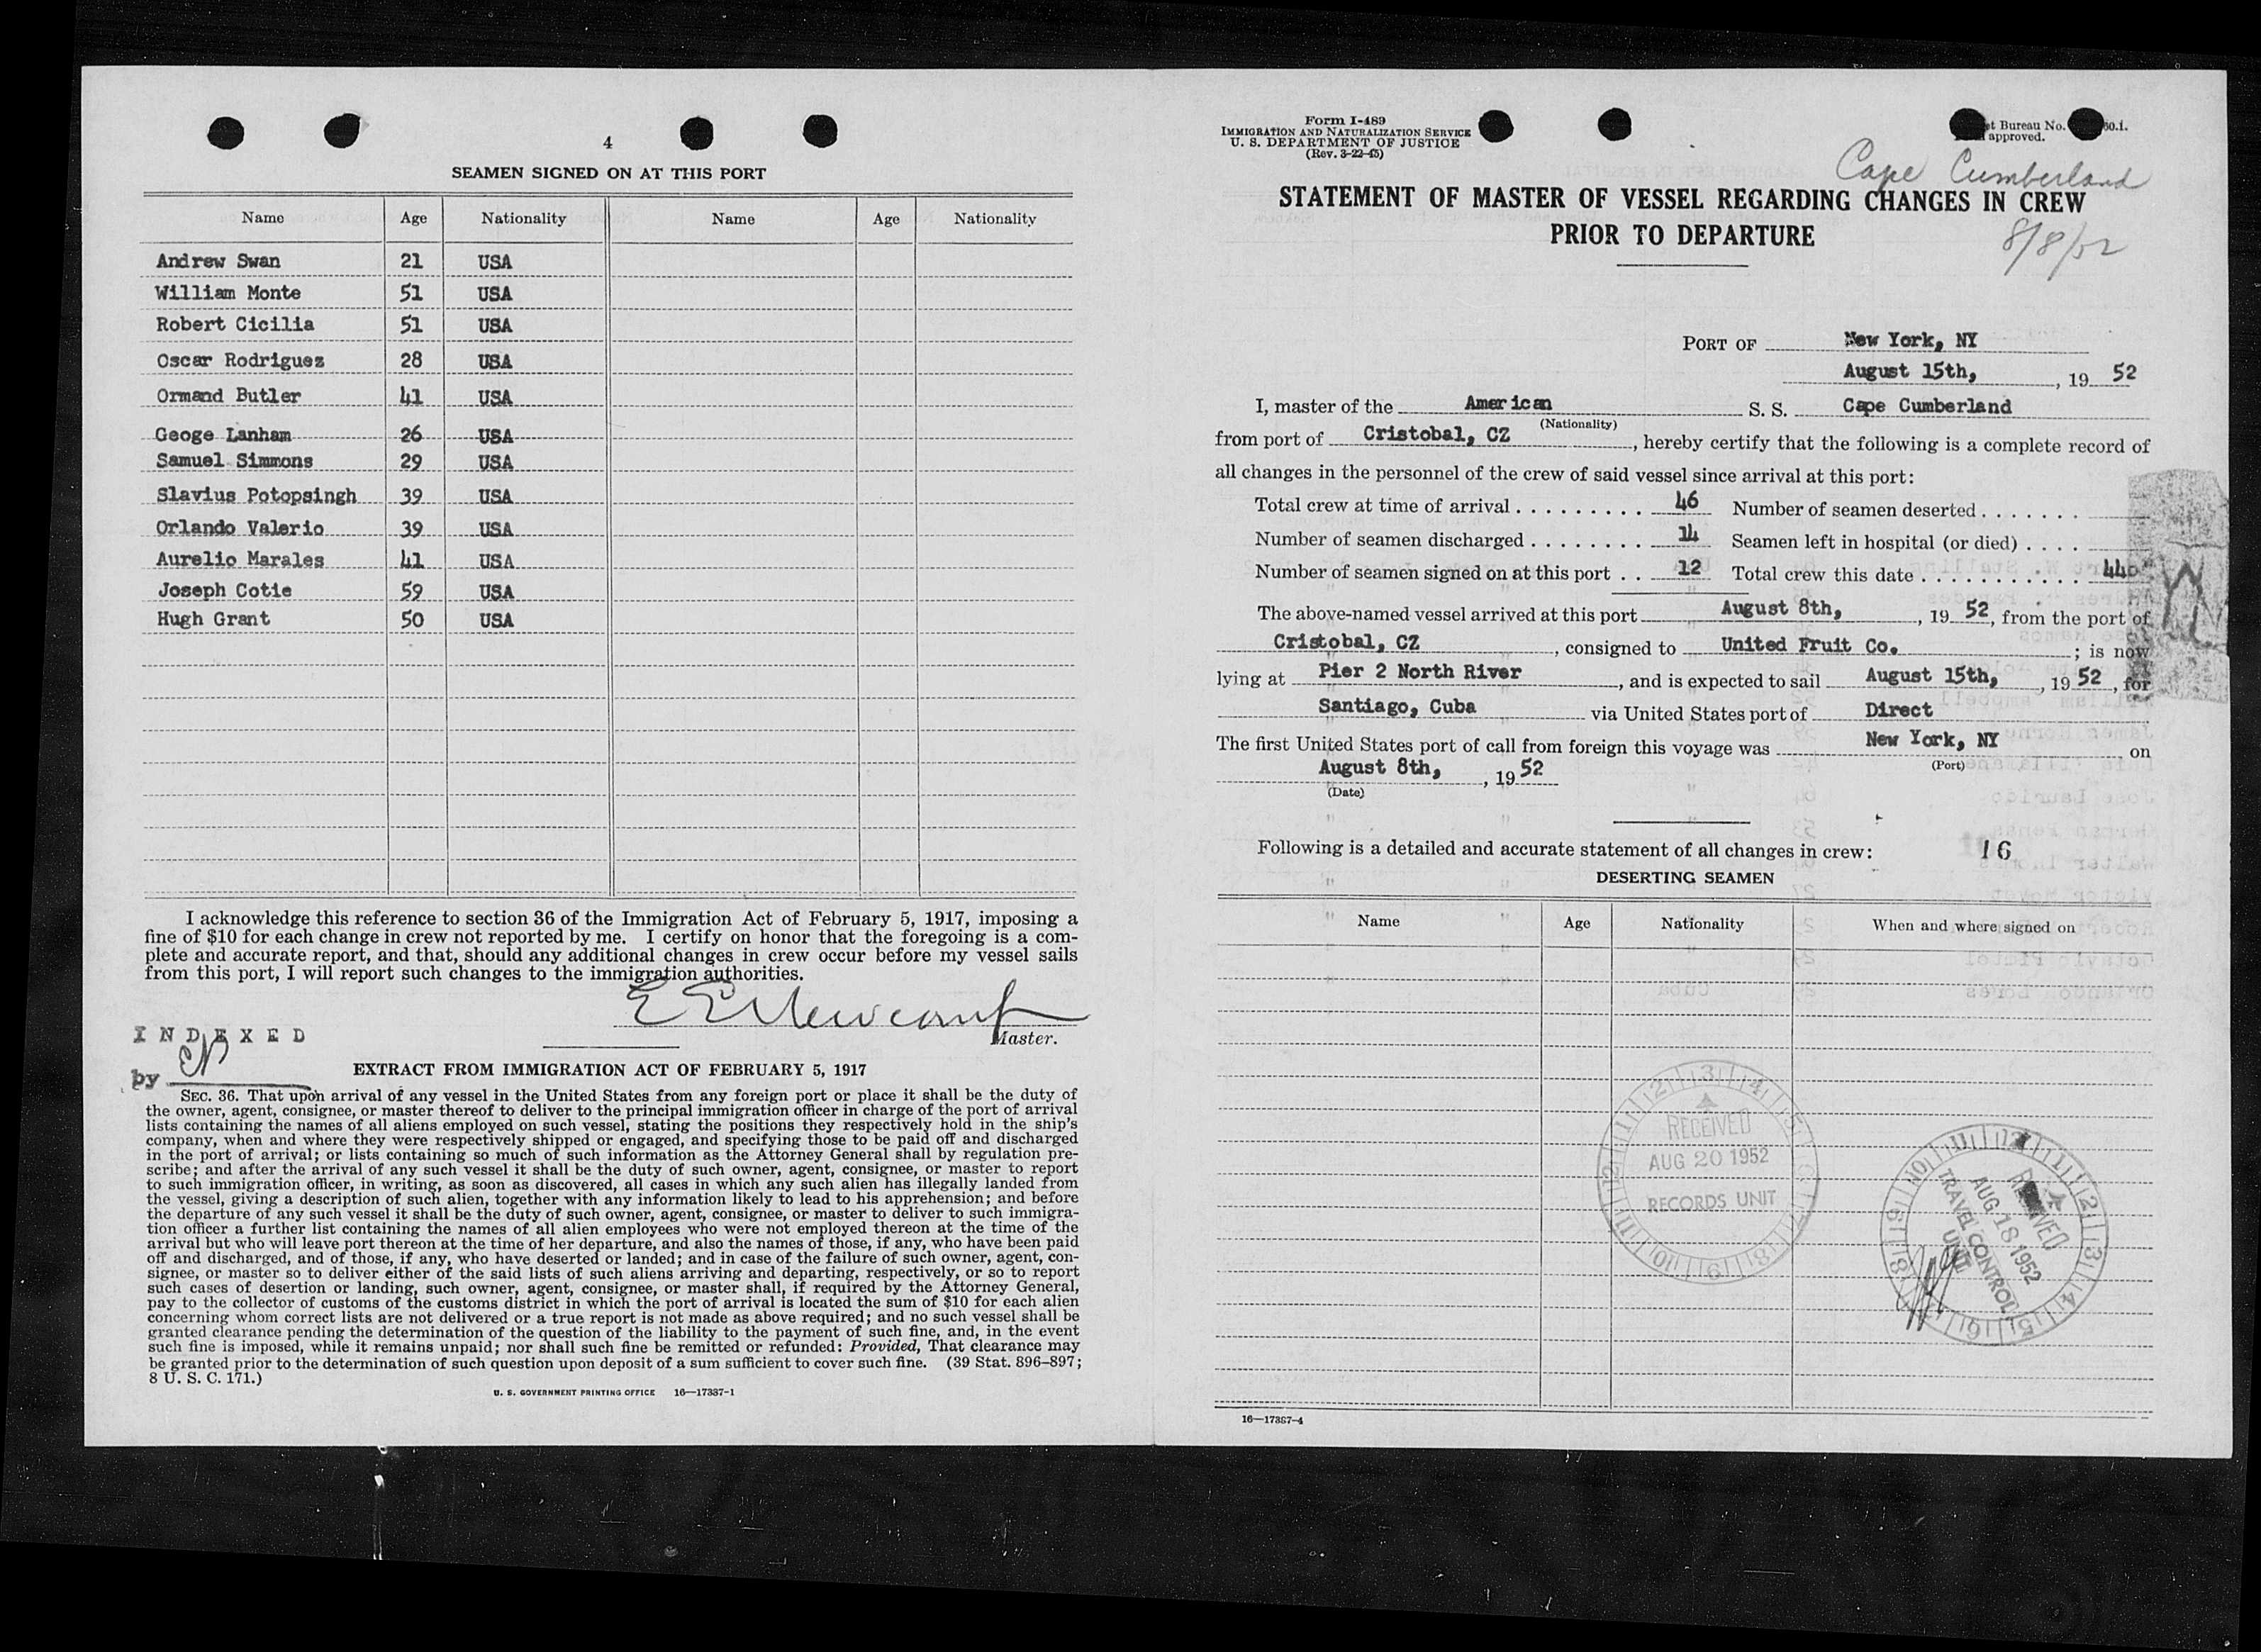 4
SEAMEN SIGNED ON AT THIS PORT
Name Age Nationality Name Age Nationality
Andrew Swan 21 USA
William Monte 51 USA
Robert Cicilia 51 USA
Oscar Rodriguez 28 USA
Ormand Butler 41 USA
Geoge Lanham 26 USA
Samuel Simmons 29 USA
Slavius Potopsingh 39 USA
Orlando Valerio 39 USA
Aurelio Marales 41 USA
Joseph Cotie 59 USA
Hugh Grant 50 USA
I acknowledge this reference to section 36 of the Immigration Act of February 5, 1917, imposing a
fine of $10 for each change in crew not reported by me. I certify on honor that the foregoing is a com-
plete and accurate report, and that, should any additional changes in crew occur before my vessel sails
from this port, I will report such changes to the immigration authorities.
E E Newcomb
Master.
INDEXED
by
EXTRACT FROM IMMIGRATION ACT OF FEBRUARY 5, 1917
SEC. 36. That upon arrival of any vessel in the United States from any foreign port or place it shall be the duty of
the owner, agent, consignee, or master thereof to deliver to the principal immigration officer in charge of the port of arrival
lists containing the names of all aliens employed on such vessel, stating the positions they respectively hold in the ship's
company, when and where they were respectively shipped or engaged, and specifying those to be paid off and discharged
in the port of arrival; or lists containing so much of such information as the Attorney General shall by regulation pre-
scribe; and after the arrival of any such vessel it shall be the duty of such owner, agent, consignee, or master to report
to such immigration officer, in writing, as soon as discovered, all cases in which any such alien has illegally landed from
the vessel, giving a description of such alien, together with any information likely to lead to his apprehension; and before
the departure of any such vessel it shall be the duty of such owner, agent, consignee, or master to deliver to such immigra-
tion officer a further list containing the names of all alien employees who were not employed thereon at the time of the
arrival but who will leave port thereon at the time of her departure, and also the names of those, if any, who have been paid
off and discharged, and of those, if any, who have deserted or landed; and in case of the failure of such owner, agent, con-
signee, or master so to deliver either of the said lists of such aliens arriving and departing, respectively, or so to report
such cases of desertion or landing, such owner, agent, consignee, or master shall, if required by the Attorney General,
pay to the collector of customs of the customs district in which the port of arrival is located the sum of $10 for each alien
concerning whom correct lists are not delivered or a true report is not made as above required; and no such vessel shall be
granted clearance pending the determination of the question of the liability to the payment of such fine, and, in the event
such fine is imposed, while it remains unpaid; nor shall such fine be remitted or refunded: Provided, That clearance may
be granted prior to the determination of such question upon deposit of a sum sufficient to cover such fine. (39 Stat. 896–897;
8 U. S. C. 171.)
U. S. GOVERNMENT PRINTING OFFICE 16—17387-1
Form I-489
IMMIGRATION AND NATURALIZATION SERVICE
U. S. DEPARTMENT OF JUSTICE
(Rev. 3-22-45)
Bureau No.
approved.
Cape Cumberland
STATEMENT OF MASTER OF VESSEL REGARDING CHANGES IN CREW
PRIOR TO DEPARTURE
8/8/52
PORT OF New York, NY
August 15th, , 19 52
I, master of the American S. S. Cape Cumberland
(Nationality)
from port of Cristobal, CZ , hereby certify that the following is a complete record of
all changes in the personnel of the crew of said vessel since arrival at this port:
Total crew at time of arrival 46 Number of seamen deserted
Number of seamen discharged 14 Seamen left in hospital (or died)
Number of seamen signed on at this port 12 Total crew this date 44
The above-named vessel arrived at this port August 8th, , 19 52, from the port of
Cristobal, CZ , consigned to United Fruit Co. ; is now
lying at Pier 2 North River , and is expected to sail August 15th, , 19 52, for
Santiago, Cuba via United States port of Direct
The first United States port of call from foreign this voyage was New York, NY on
(Port)
August 8th, , 19 52
(Date)
Following is a detailed and accurate statement of all changes in crew: 16
DESERTING SEAMEN
Name Age Nationality When and where signed on
RECEIVED
AUG 20 1952
RECORDS UNIT
RECEIVED
AUG 18 1952
TRAVEL CONTROL
UNIT
16—17387-4